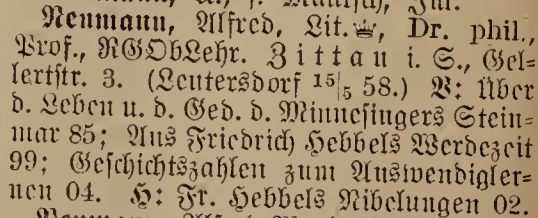 Neumann, Alfred, Lit. Dr. phil.,
Prof., RGObLehr. Zittau i. S., Gel=
lertstr. 3. (Leutersdorf 15/5 58.) V: Über
d. Leben u. d. Ged. d. Minnesingers Stein=
mar 85; Aus Friedrich Hebbels Werdezeit
99; Geschichtszahlen zum Auswendigler=
nen 04. H: Fr. Hebbels Nibelungen 02.